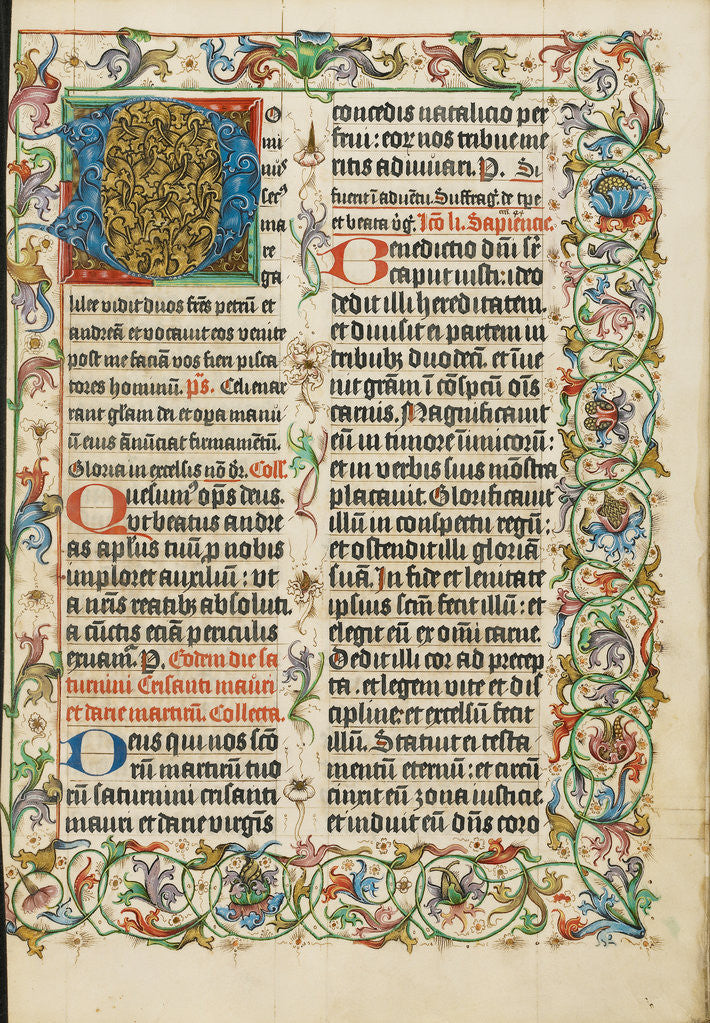 D
o
mi
nus
secus
ma
re
ga
lilee vidit duos fr̄es petrū et
andreā et vocavit eos venite
post me faciā vos fieri pisca
tores hominū. ps. Celi enar
rant glām dei et oꝑa manu
ū eius ānūciat firmamētū.
Gloria in excelsis nō dr̄. Coll.
Quesumꝰ op̄s deus.
vt beatus andre
as apl̄us tuū ꝓ nobis
imploret auxiliū : vt
a nr̄is reatibꝫ absoluti.
a cūctis eciā periculis
exuam̄. P. Eodem die sa
turnini Crisanti mauri
et darie martirū. Collecta.
Deus qui nos scō
rū martirū tuo
rū saturnini crisanti
mauri et darie virgīs
concedis natalicio per
frui : eoꝝ nos tribue me
ritis adiuuari. P. Si
fuerit ī aduētu. Suffrag. de tꝑe
et beata v̄g. Lcō li. Sapiencie.
Benedictio dn̄i sr̄
caput iusti : ideo
dedit illi hereditatem.
et diuisit ei partem in
tribubꝫ duodecī. et īue
nit grām ī cōspcū oīs
carnis. Magnificauit
eū in timore inimicorū :
et in verbis suis mōstra
placauit. Glorificauit
illū in conspectu regū :
et ostendit illi gloriā
suā. In fide et lenitate
ipsius scm̄ fecit illū : et
elegit eū ex om̄i carne.
Dedit illi cor ad precep
ta . et legem vite et dis
cipline : et excelsū fecit
illū. Statuit ei testa
mentū eternū : et circū
cinxit eū zona iusticie.
et induit eū dn̄s coro